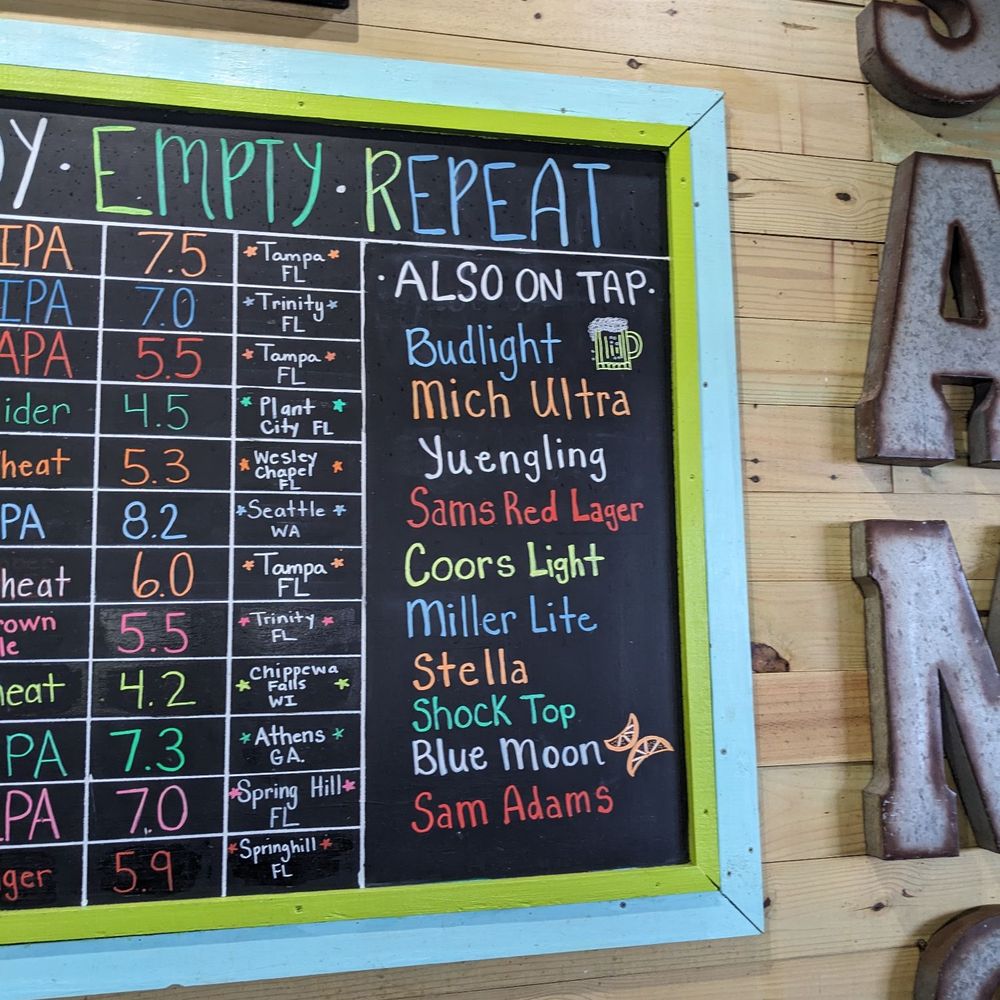 Y · EMPTY · REPEAT
IPA 7.5 Tampa
FL
IPA 7.0 Trinity
FL
APA 5.5 Tampa
FL
ider 4.5 Plant
City FL
heat 5.3 Wesley
Chapel
FL
PA 8.2 Seattle
WA
heat 6.0 Tampa
FL
rown
le 5.5 Trinity
FL
heat 4.2 Chippewa
Falls
WI
PA 7.3 Athens
GA.
PA 7.0 Spring Hill
FL
ger 5.9 Springhill
FL
· ALSO ON TAP ·
Budlight
Mich Ultra
Yuengling
Sams Red Lager
Coors Light
Miller Lite
Stella
Shock Top
Blue Moon
Sam Adams
A
N